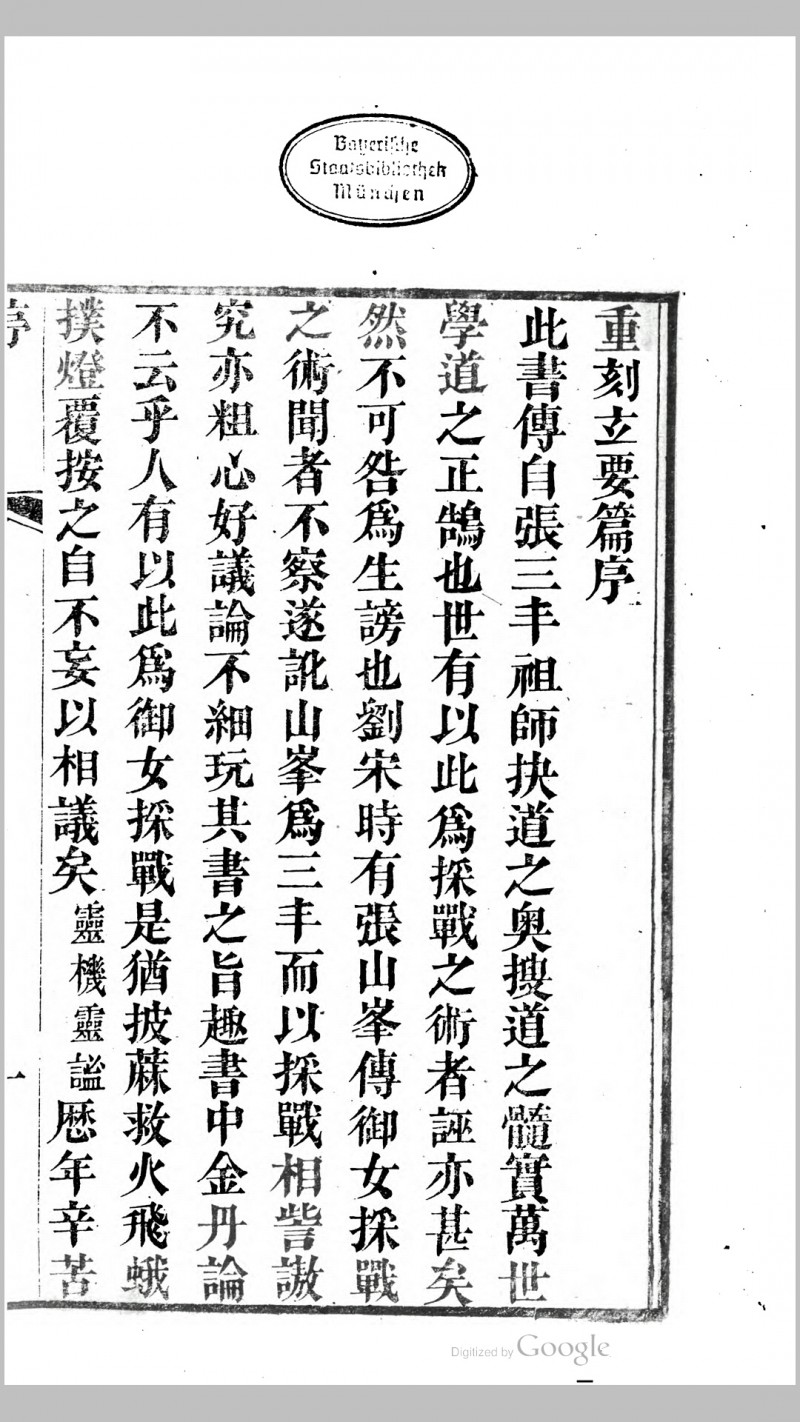 Bayerische
Staatsbibliothek
München
重刻玄要篇序
此書傳自張三丰祖師抉道之奥搜道之髓實萬世
學道之正鵠也世有以此爲採戰之術者誣亦甚矣
然不可咎爲生謗也劉宋時有張山峯傳御女採戰
之術聞者不察遂訛山峯爲三丰而以採戰相訾謷
究亦粗心好議論不細玩其書之旨趣書中金丹論
不云乎人有以此爲御女採戰是猶披蔴救火飛蛾
撲燈覆按之自不妄以相議矣靈機靈謐歷年辛苦
序
一
Digitized by Google